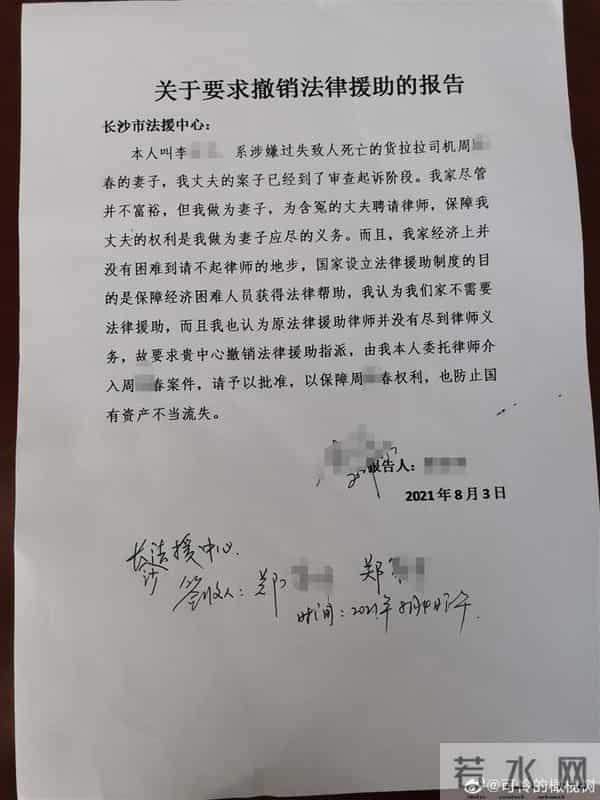 关于要求撤销法律援助的报告
长沙市法援中心：
本人叫李 系涉嫌过失致人死亡的货拉拉司机周
春的妻子，我丈夫的案子已经到了审查起诉阶段。我家尽管
并不富裕，但我做为妻子，为含冤的丈夫聘请律师，保障我
丈夫的权利是我做为妻子应尽的义务。而且，我家经济上并
没有困难到请不起律师的地步，国家设立法律援助制度的目
的是保障经济困难人员获得法律帮助，我认为我们家不需要
法律援助，而且我也认为原法律援助律师并没有尽到律师义
务，故要求贵中心撤销法律援助指派，由我本人委托律师介
入周 春案件，请予以批准，以保障周 春权利，也防止国
有资产不当流失。
报告人：
2021年8月3日
长沙法援中心
签收人：郑 郑
时间：2021年8月4日下午
若水网
@可怜的橄榄树